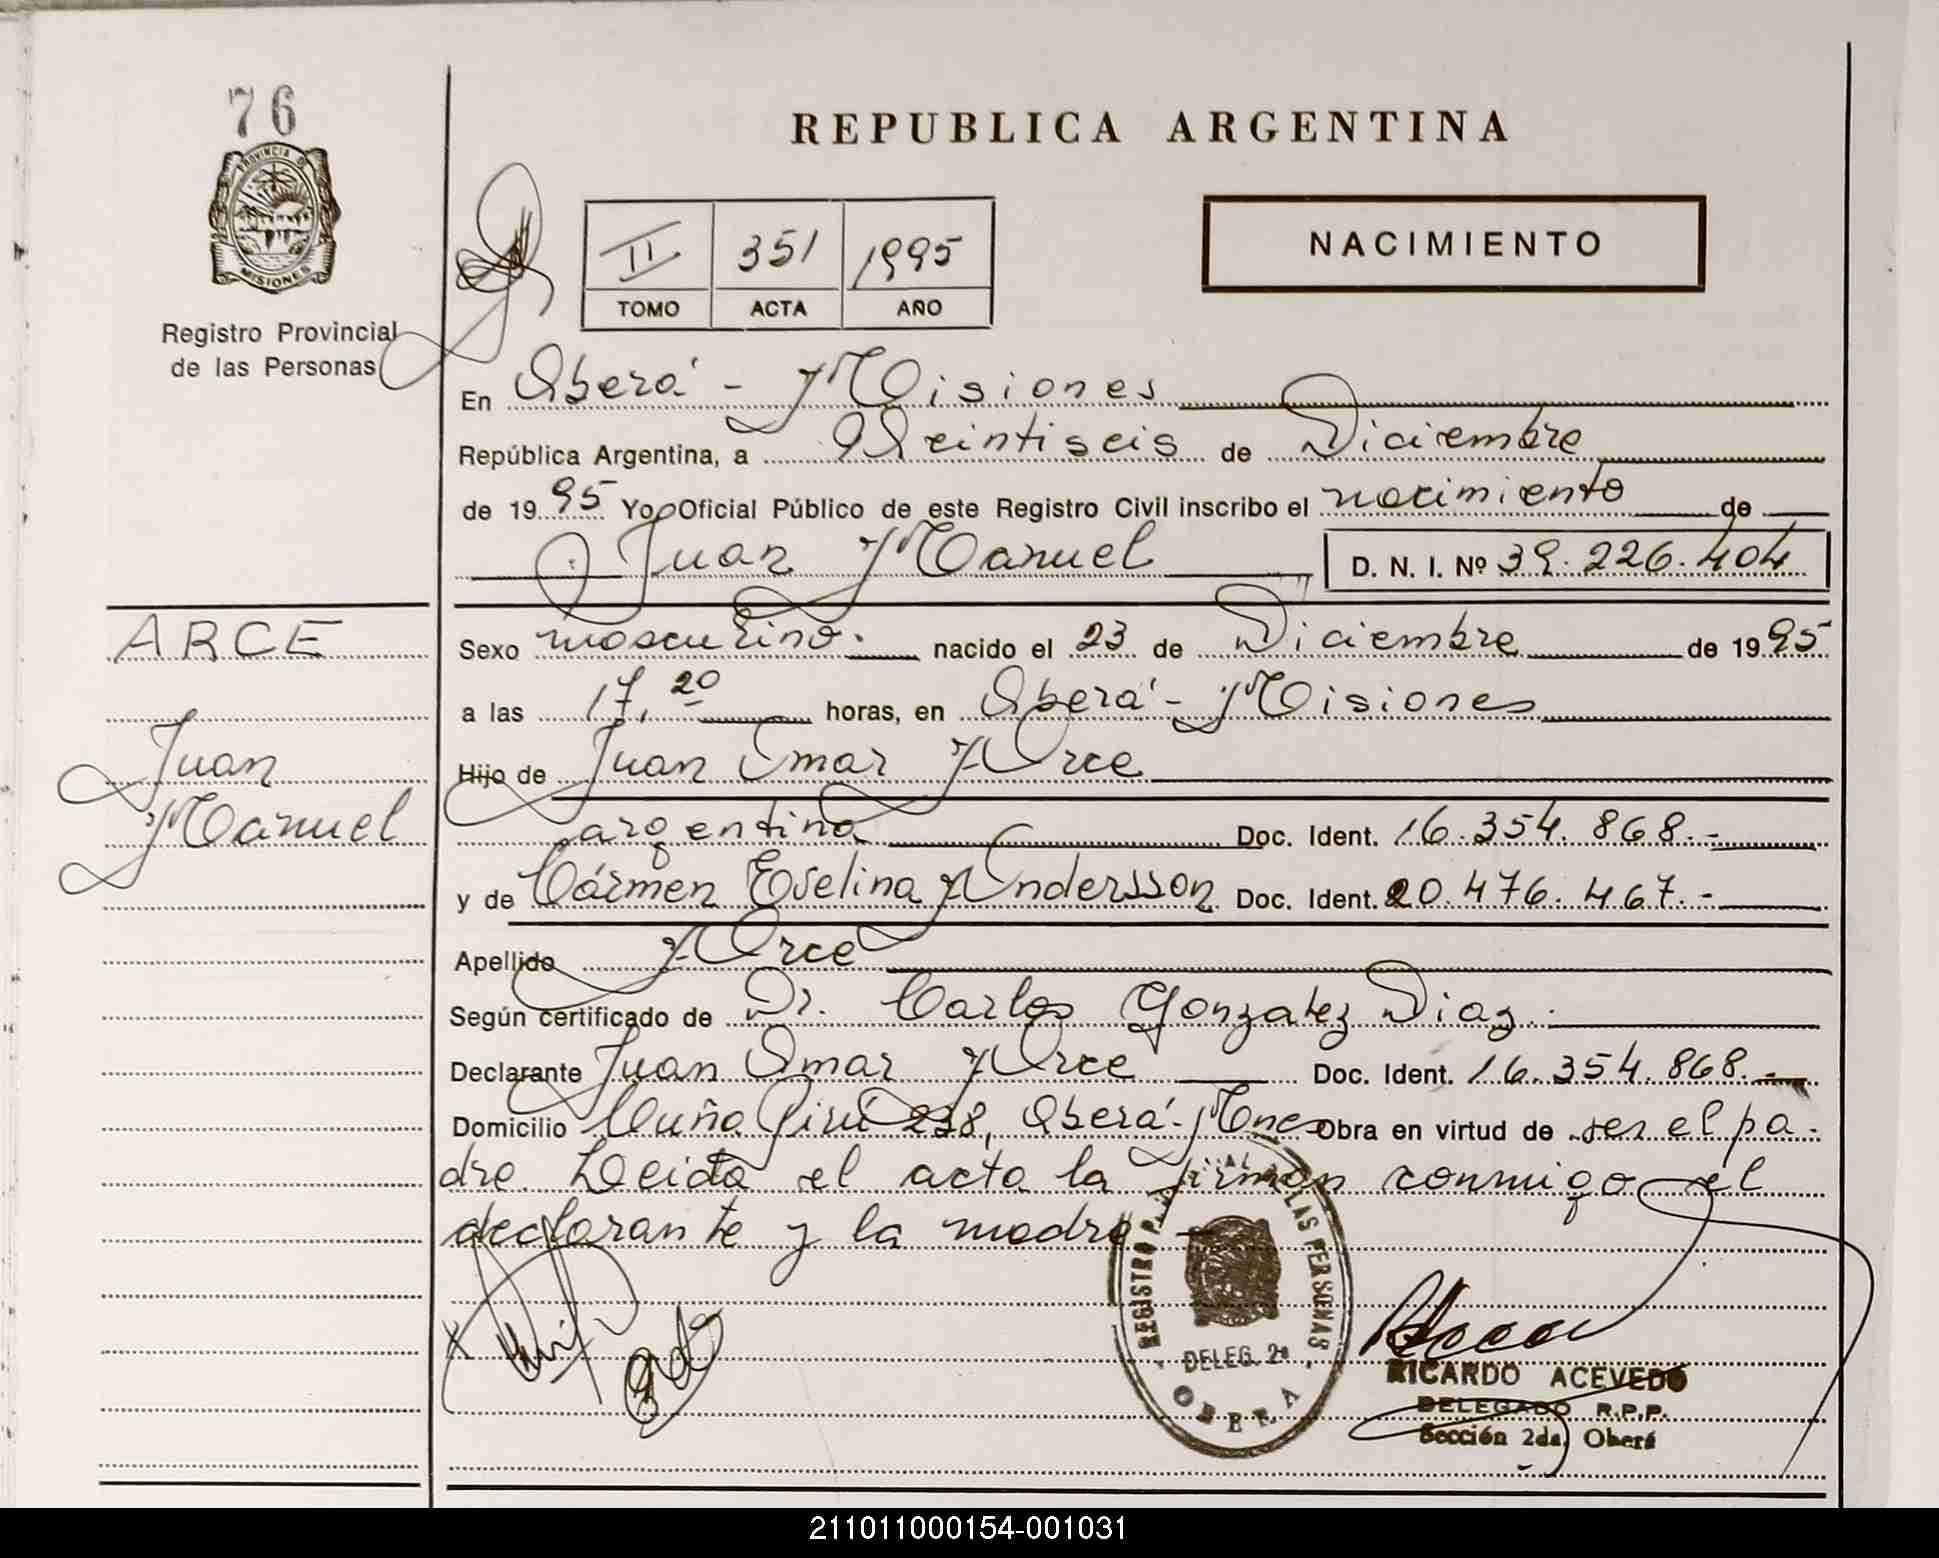 76
PROVINCIA D
MISIONES
Registro Provincial
de las Personas
REPUBLICA ARGENTINA
II 351 1995
TOMO ACTA AÑO
NACIMIENTO
En Oberá - Misiones
República Argentina, a Veintiseis de Diciembre
de 1995 Yo Oficial Público de este Registro Civil inscribo el nacimiento de
Juan Manuel D. N. I. Nº 39.226.404
ARCE
Juan
Manuel
Sexo masculino. nacido el 23 de Diciembre de 1995
a las 17,20 horas, en Oberá - Misiones
Hijo de Juan Omar Arce
argentina Doc. Ident. 16.354.868.-
y de Cármen Evelina Andersson Doc. Ident. 20.476.467.-
Apellido Arce
Según certificado de Dr. Carlos Gonzalez Diaz.
Declarante Juan Omar Arce Doc. Ident. 16.354.868.-
Domicilio Cuña Pirú 238, Oberá - Mnes Obra en virtud de ser el pa-
dre. Leida el acta la firman conmigo el
declarante y la madre -
REGISTRO P AL LAS PERSONAS
DELEG. 2ª
OBERA
RICARDO ACEVEDO
DELEGADO R.P.P.
Sección 2da, Oberá
211011000154-001031